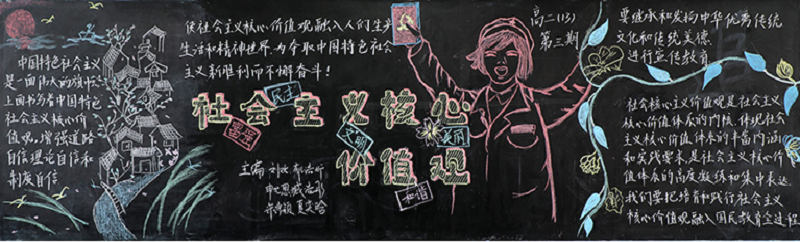 中国特色社会主义
是一面伟大的旗帜
上面书写着中国特色
社会主义核心价
值观。增强道路
自信理论自信和
制度自信
使社会主义核心价值观融入人们生产
生活和精神世界,为夺取中国特色社会
主义新胜利而不懈奋斗!
高二(13)
第三期
社会主义核心
价值观
民主
富强
文明
和谐
主编
要继承和发扬中华优秀传统
文化和传统美德
进行宣传教育
社会核心主义价值观是社会主义
核心价值体系的内核 体现社会
主义核心价值体系的丰富内涵
和实践要求,是社会主义核心价
值体系的高度凝练和集中表达
我们要把培育和践行社会主义
核心价值观融入国民教育全过程